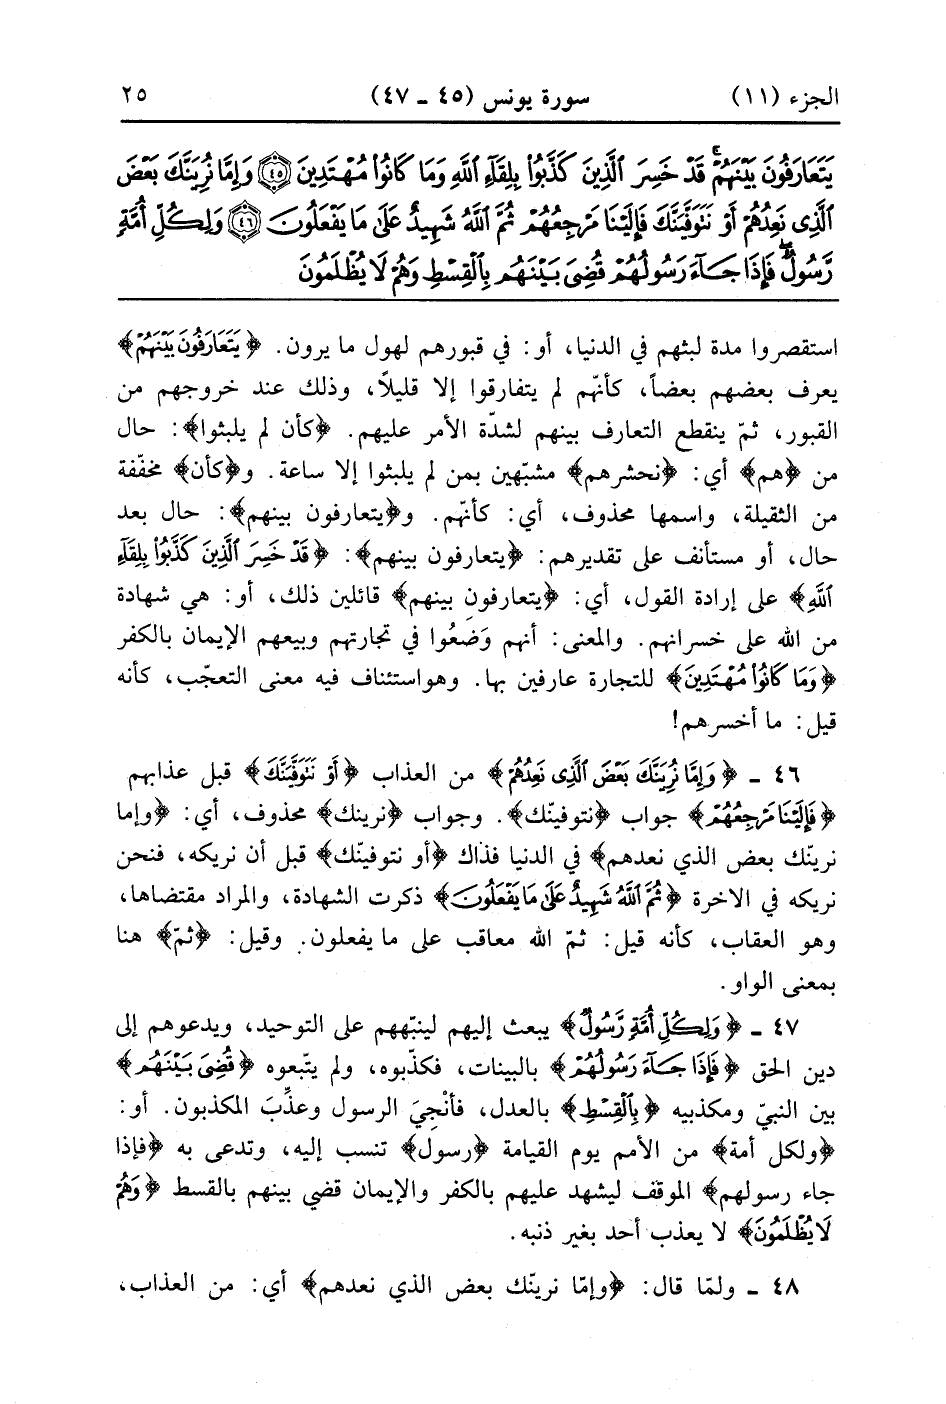 الجزء (١١) سورة يونس (٤٥ ـ ٤٧) ٢٥
يَتَعَارَفُونَ بَيْنَهُمْ قَدْ خَسِرَ ٱلَّذِينَ كَذَّبُوا۟ بِلِقَآءِ ٱللَّهِ وَمَا كَانُوا۟ مُهْتَدِينَ ﴿٤٥﴾ وَإِمَّا نُرِيَنَّكَ بَعْضَ
ٱلَّذِى نَعِدُهُمْ أَوْ نَتَوَفَّيَنَّكَ فَإِلَيْنَا مَرْجِعُهُمْ ثُمَّ ٱللَّهُ شَهِيدٌ عَلَىٰ مَا يَفْعَلُونَ ﴿٤٦﴾ وَلِكُلِّ أُمَّةٍ
رَّسُولٌ ۖ فَإِذَا جَآءَ رَسُولُهُمْ قُضِىَ بَيْنَهُم بِٱلْقِسْطِ وَهُمْ لَا يُظْلَمُونَ
استقصروا مدة لبثهم في الدنيا، أو: في قبورهم لهول ما يرون. ﴿يَتَعَارَفُونَ بَيْنَهُمْ﴾
يعرف بعضهم بعضاً، كأنّهم لم يتفارقوا إلا قليلًا، وذلك عند خروجهم من
القبور، ثمّ ينقطع التعارف بينهم لشدّة الأمر عليهم. ﴿كأن لم يلبثوا﴾: حال
من ﴿هم﴾ أي: ﴿نحشرهم﴾ مشبّهين بمن لم يلبثوا إلا ساعة. و﴿كأن﴾ مخفّفة
من الثقيلة، واسمها محذوف، أي: كأنّهم. و﴿يتعارفون بينهم﴾: حال بعد
حال، أو مستأنف على تقديرهم: ﴿يتعارفون بينهم﴾: ﴿قَدْ خَسِرَ ٱلَّذِينَ كَذَّبُوا۟ بِلِقَآءِ
ٱللَّهِ﴾ على إرادة القول، أي: ﴿يتعارفون بينهم﴾ قائلين ذلك، أو: هي شهادة
من الله على خسرانهم. والمعنى: أنهم وَضَعُوا في تجارتهم وبيعهم الإيمان بالكفر
﴿وَمَا كَانُوا۟ مُهْتَدِينَ﴾ للتجارة عارفين بها. وهواستئناف فيه معنى التعجّب، كأنه
قيل: ما أخسرهم!
٤٦ ـ ﴿وَإِمَّا نُرِيَنَّكَ بَعْضَ ٱلَّذِى نَعِدُهُمْ﴾ من العذاب ﴿أَوْ نَتَوَفَّيَنَّكَ﴾ قبل عذابهم
﴿فَإِلَيْنَا مَرْجِعُهُمْ﴾ جواب ﴿نتوفينّك﴾. وجواب ﴿نرينك﴾ محذوف، أي: ﴿وإما
نرينّك بعض الذي نعدهم﴾ في الدنيا فذاك ﴿أو نتوفينّك﴾ قبل أن نريكه، فنحن
نريكه في الاخرة ﴿ثُمَّ ٱللَّهُ شَهِيدٌ عَلَىٰ مَا يَفْعَلُونَ﴾ ذكرت الشهادة، والمراد مقتضاها،
وهو العقاب، كأنه قيل: ثمّ الله معاقب على ما يفعلون. وقيل: ﴿ثمّ﴾ هنا
بمعنى الواو.
٤٧ ـ ﴿وَلِكُلِّ أُمَّةٍ رَّسُولٌ﴾ يبعث إليهم لينبّههم على التوحيد، ويدعوهم إلى
دين الحق ﴿فَإِذَا جَآءَ رَسُولُهُمْ﴾ بالبينات، فكذّبوه، ولم يتّبعوه ﴿قُضِىَ بَيْنَهُم﴾
بين النبيّ ومكذبيه ﴿بِٱلْقِسْطِ﴾ بالعدل، فأنْجِيَ الرسول وعذِّبَ المكذبون. أو:
﴿ولكل أمة﴾ من الأمم يوم القيامة ﴿رسول﴾ تنسب إليه، وتدعى به ﴿فإذا
جاء رسولهم﴾ الموقف ليشهد عليهم بالكفر والإيمان قضي بينهم بالقسط ﴿وَهُمْ
لَا يُظْلَمُونَ﴾ لا يعذب أحد بغير ذنبه.
٤٨ ـ ولمّا قال: ﴿وإمّا نرينّك بعض الذي نعدهم﴾ أي: من العذاب،